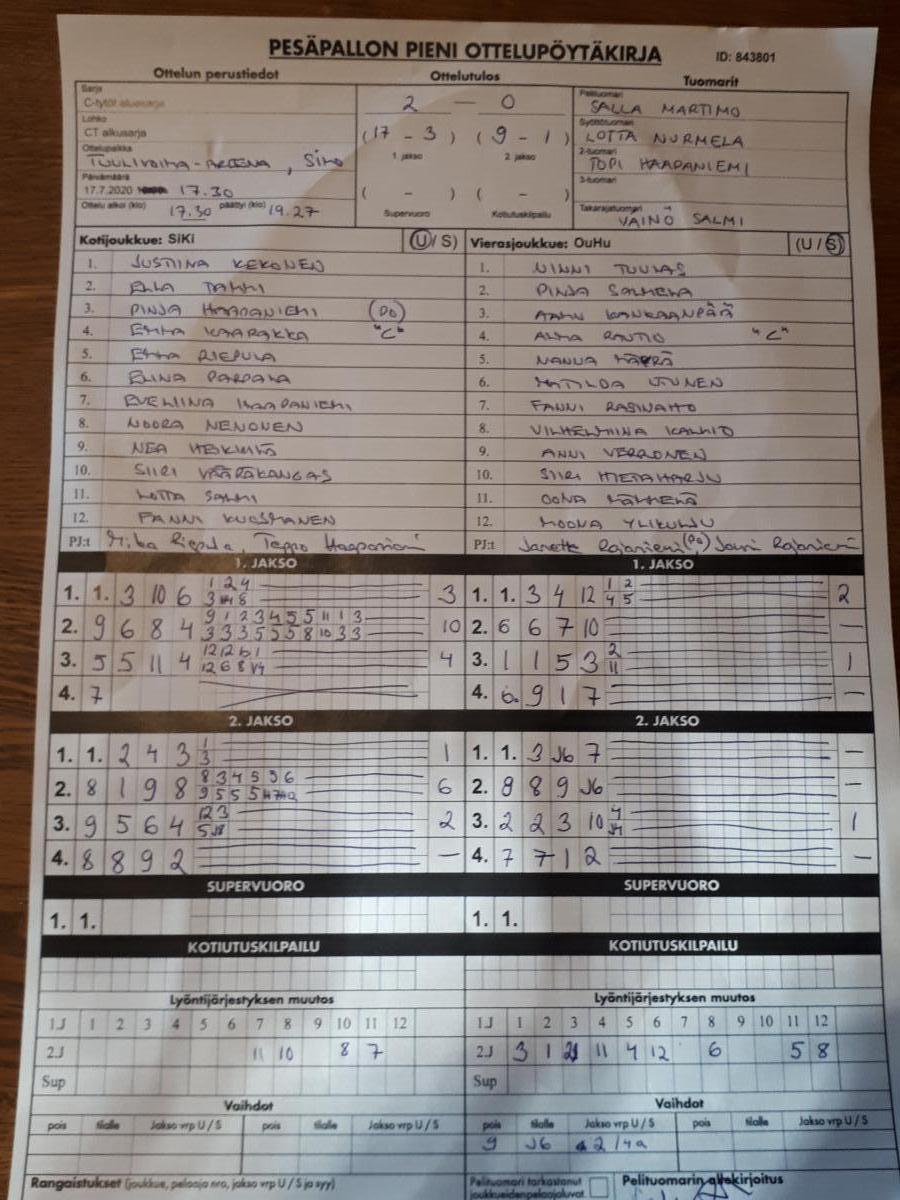 PESÄPALLON PIENI OTTELUPÖYTÄKIRJA
ID: 843801
Ottelun perustiedot
Ottelutulos
Tuomarit
Sarja
C-tytöt aluesarja
Lohko
CT alkusarja
Ottelupaikka
TUULIVOIMA-AREENA, SIMO
Päivämäärä
17.7.2020 17.30
Ottelu alkoi (klo) 17.30 päättyi (klo) 19.27
2 — 0
(17 - 3) (9 - 1)
1. jakso 2. jakso
( - ) ( - )
Supervuoro Kotiutuskilpailu
Pelituomari
SALLA MARTIMO
Syöttötuomari
LOTTA NURMELA
2-tuomari
TOPI HAAPANIEMI
3-tuomari
Takarajatuomari
VÄINÖ SALMI
Kotijoukkue: SiKi (U / S)
1. JUSTIINA KEKONEN
2. ELLA TAMMI
3. PINJA HAAPANIEMI (PO)
4. EMMA KAARAKKA "C"
5. EMMA RIEPULA
6. ELINA PARPALA
7. EVELIINA HAAPANIEMI
8. NOORA NENONEN
9. NEA HEIKKILÄ
10. SIIRI VÄÄRÄKANGAS
11. LOTTA SALMI
12. FANNI KUOSMANEN
PJ:t Mika Riepula, Teppo Haapaniemi
Vierasjoukkue: OuHu (U / S)
1. NINNI TUULAS
2. PINJA SALMELA
3. KANKAANPÄÄ
4. ALMA RAUTIO "C"
5. NANNA
6. MATILDA
7. FANNI RASINAHO
8. VILHELMIINA KALLIO
9. ANNI VERRONEN
10. SIIRI METAHARJU
11. OONA
12. MOONA YLIKULJU
PJ:t Janette Rajaniemi (PO), Jouni Rajaniemi
1. JAKSO
1. 1. 3 10 6 1 2 4 3
2. 9 6 8 4 9 1 2 3 4 5 5 11 1 3 10
3 3 3 5 5 5 8 10 3 3
3. 5 5 11 4 4
4. 7
1. JAKSO
1. 1. 3 4 12 1 2 2
4 5
2. 6 6 7 10 —
3. 1 1 5 3 2 1
11
4. 6. 9 1 7 —
2. JAKSO
1. 1. 2 4 3 1 1
3
2. 8 1 9 8 8 3 4 5 5 6 6
9 5 5 5
3. 9 5 6 4 12 3 2
4. 8 8 9 2 —
2. JAKSO
1. 1. 3 J6 7 —
2. 8 8 9 J6 —
3. 2 2 3 10 1
4. 7 7 1 2 —
SUPERVUORO
1. 1.
SUPERVUORO
1. 1.
KOTIUTUSKILPAILU
KOTIUTUSKILPAILU
Lyöntijärjestyksen muutos
1.J 1 2 3 4 5 6 7 8 9 10 11 12
2.J 11 10 8 7
Sup
Lyöntijärjestyksen muutos
1.J 1 2 3 4 5 6 7 8 9 10 11 12
2.J 3 1 11 4 12 6 5 8
Sup
Vaihdot
pois tilalle Jakso vrp U / S pois tilalle Jakso vrp U / S
Vaihdot
pois tilalle Jakso vrp U / S pois tilalle Jakso vrp U / S
9 J6 2 / 4a
Rangaistukset (joukkue, pelaaja nro, jakso vrp U / S ja syy)
Pelituomari tarkastanut
joukkueiden pelaajaluvat
Pelituomarin allekirjoitus